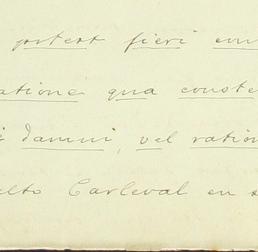 potest fieri
ratione qua conste
damni, vel ration
elto Carleval en s